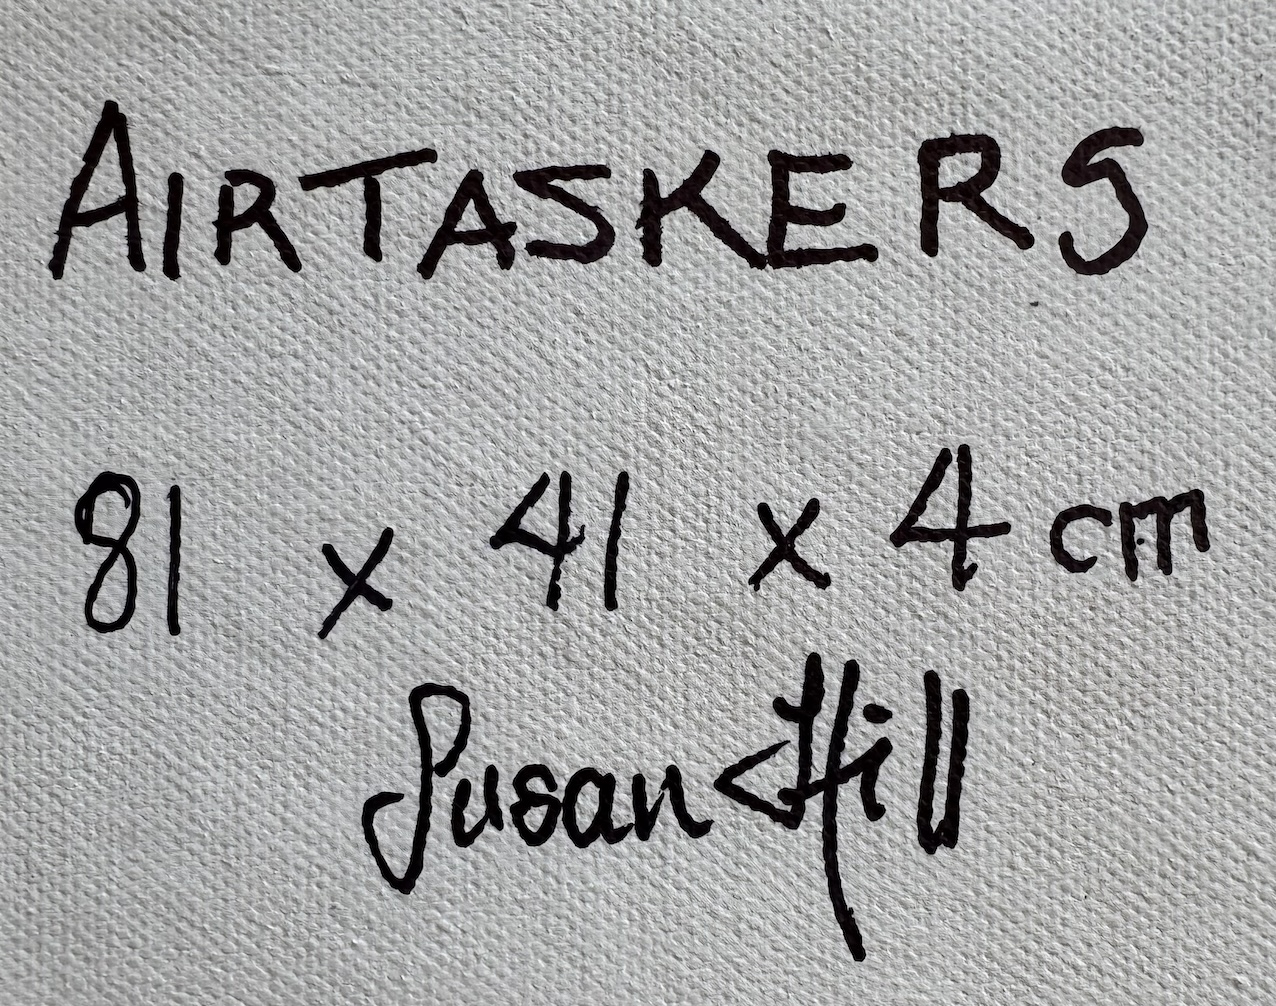 AIRTASKERS
81 x 41 x 4 cm
Susan Hill